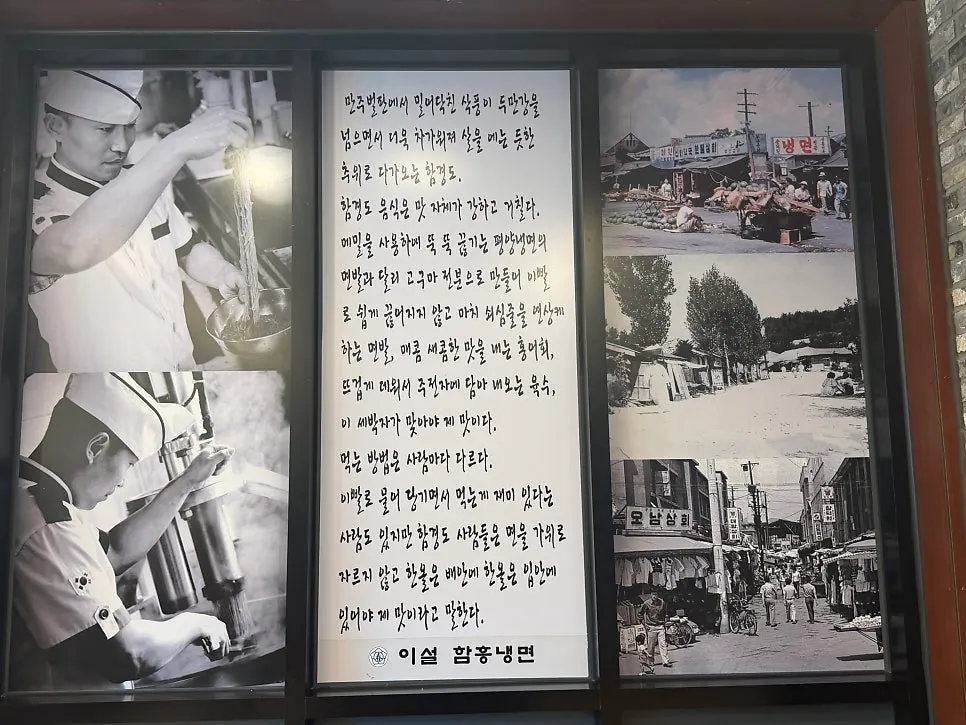 만주벌판에서 밀어닥친 삭풍이 두만강을
넘으면서 더욱 차가워져 살을 에는 듯한
추위로 다가오는 함경도.
함경도 음식은 맛 자체가 강하고 거칠다.
메밀을 사용하여 뚝 뚝 끊기는 평양냉면의
면발과 달리 고구마 전분으로 만들어 이빨
로 쉽게 끊어지지 않고 마치 쇠심줄을 연상케
하는 면발, 매콤 새콤한 맛을 내는 홍어회,
뜨겁게 데워서 주전자에 담아 내오는 육수,
이 세박자가 맞아야 제 맛이다.
먹는 방법은 사람마다 다르다.
이빨로 물어 당기면서 먹는게 재미 있다는
사람도 있지만 함경도 사람들은 면을 가위로
자르지 않고 한올은 배안에 한올은 입안에
있어야 제 맛이라고 말한다.
이설 함흥냉면
냉면
오남상회